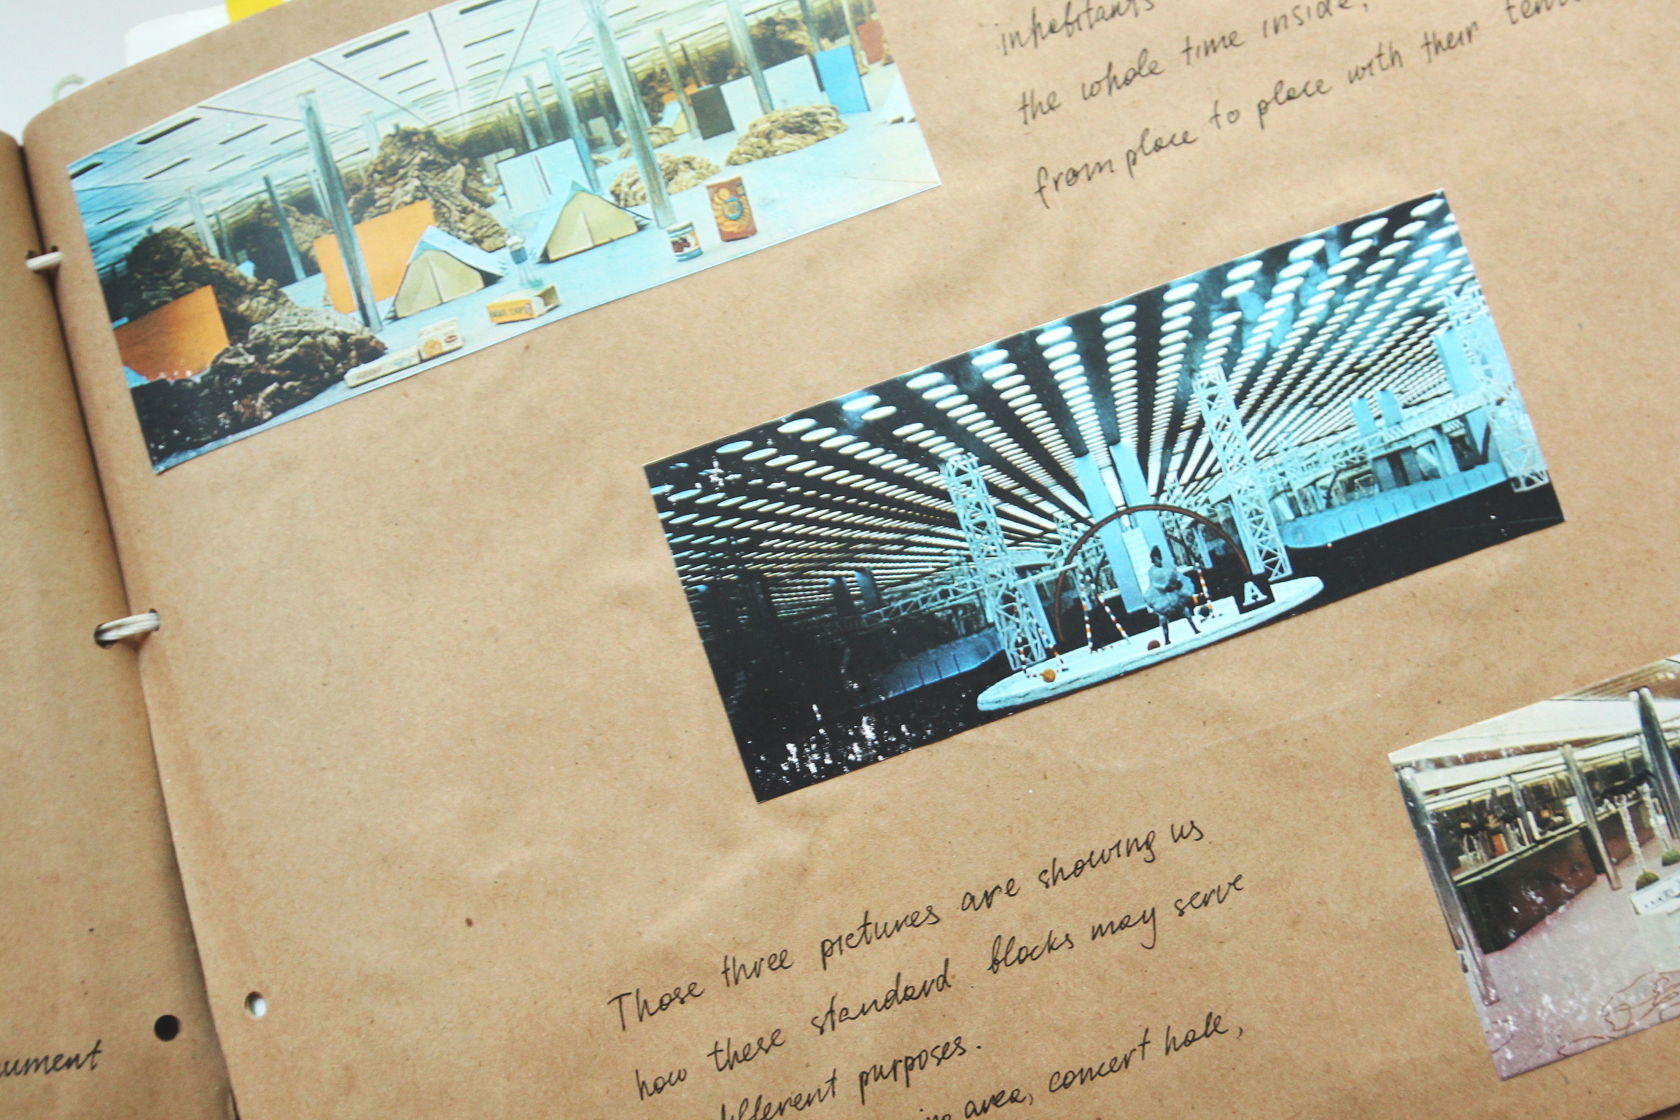 inhabitants
the whole time inside,
from place to place with their
A
Those three pictures are showing us
how these standard blocks may serve
different purposes.
area, concert hale,
ument